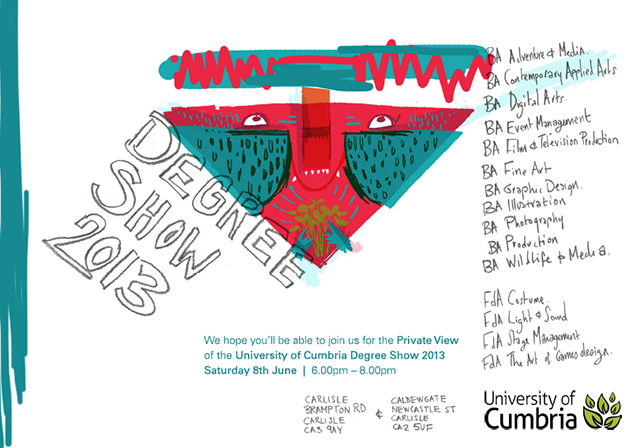 DEGREE
SHOW
2013
BA Adventure & Media.
BA Contemporary Applied Arts
BA Digital Arts.
BA Event Management
BA Film & Television Production
BA Fine Art
BA Graphic Design.
BA Illustration
BA Photography
BA Production
BA Wildlife & Media.
FdA Costume.
FdA Light & Sound
FdA Stage Management
FdA The Art of Games design.
We hope you'll be able to join us for the Private View
of the University of Cumbria Degree Show 2013
Saturday 8th June | 6.00pm – 8.00pm
CARLISLE
BRAMPTON RD
CARLISLE
CA3 9AY
&
CALDEWGATE
NEWCASTLE ST
CARLISLE
CA2 5UF
University of
Cumbria